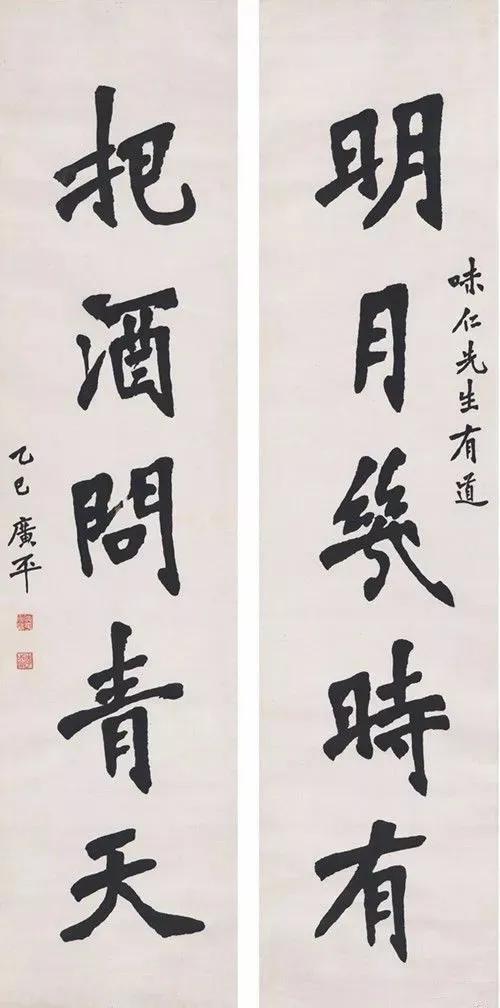 明月幾時有
味仁先生有道
把酒問青天
乙巳 廣平